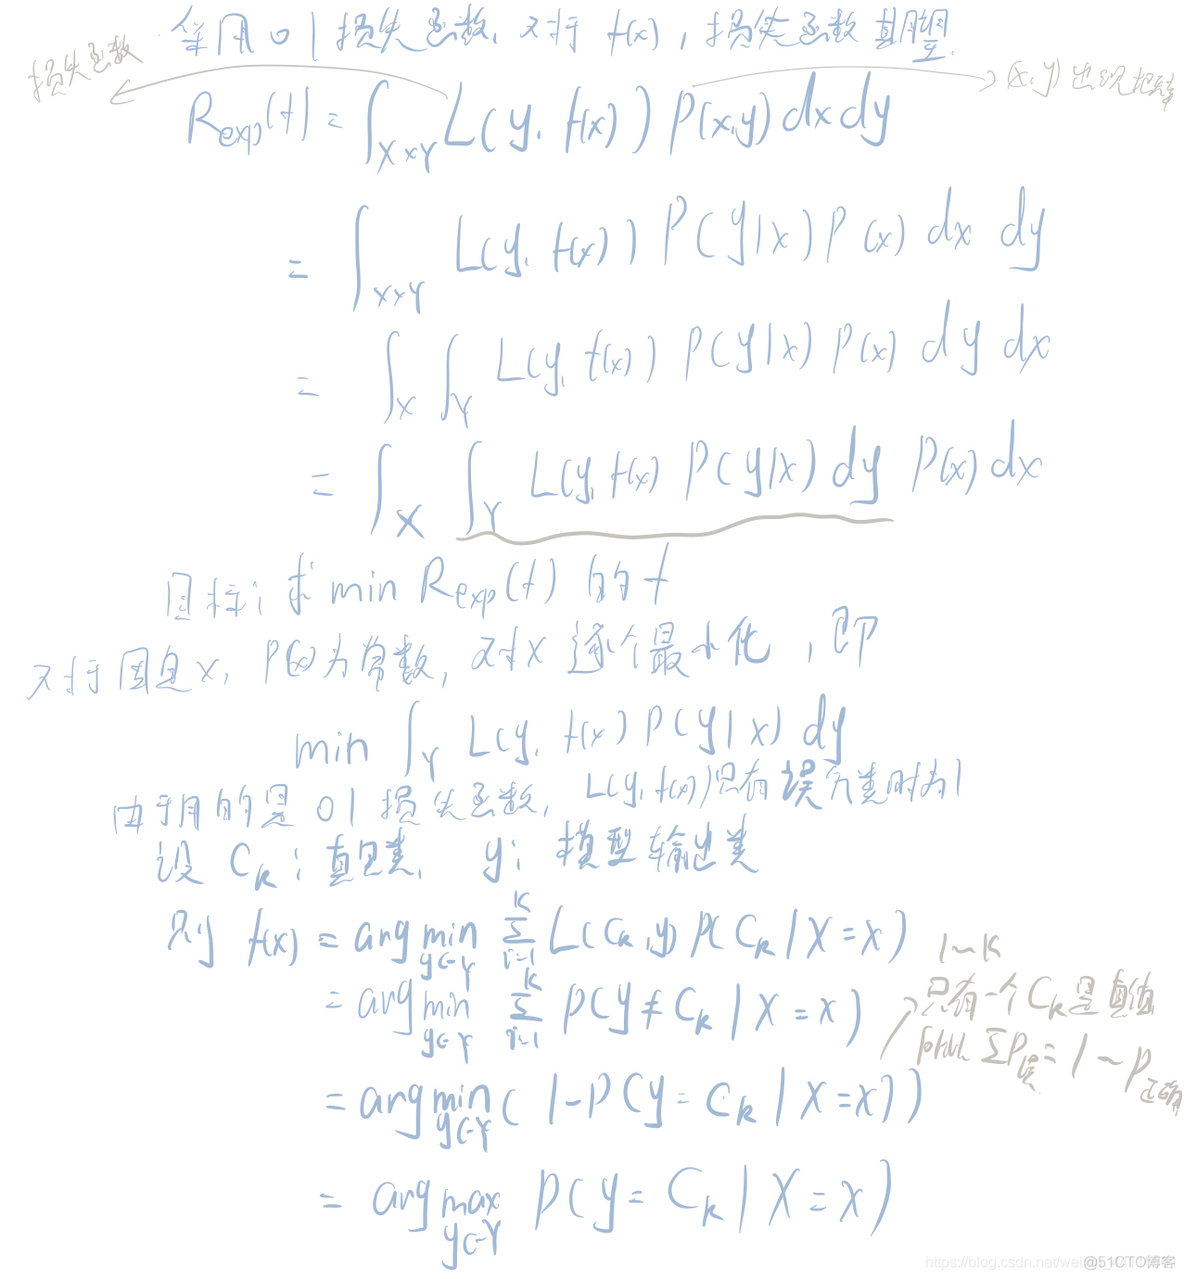 使用01损失函数,对于f(x),损失函数期望
损失函数
(x,y)出现概率
Rexp(f) = ∫X×Y L(y, f(x)) P(x,y) dx dy
= ∫X×Y L(y, f(x)) P(y|x) P(x) dx dy
= ∫X ∫Y L(y, f(x)) P(y|x) P(x) dy dx
= ∫X ∫Y L(y, f(x) P(y|x) dy P(x) dx
目标: 求 min Rexp(f) 的 f
对于固定x, P(x)为常数, 对x 逐个最小化, 即
min ∫Y L(y, f(x)) P(y|x) dy
由于用的是 01 损失函数, L(y, f(x))只有误分类时为1
设 Ck: 真实类, y: 模型输出类
则 f(x) = arg min y∈Y Σ i=1 K L(Ck, y) P(Ck | X = x)
= arg min y∈Y Σ i=1 K P(y ≠ Ck | X = x)
1~K
只有一个Ck是真值
所以 ΣP误 = 1 - P正确
= arg min y∈Y ( 1 - P(y = Ck | X = x))
= arg max y∈Y P(y = Ck | X = x)
@51CTO博客